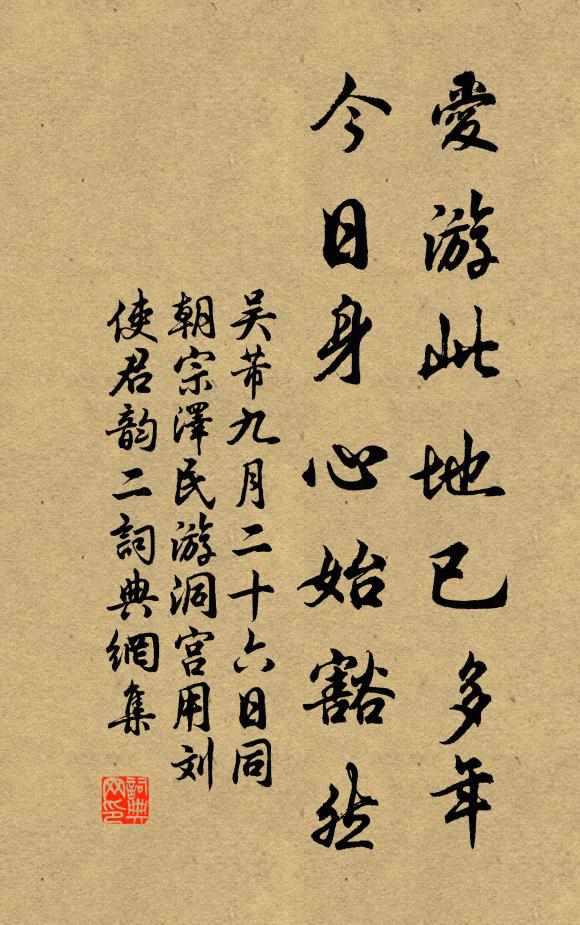 愛游此地已多年
今日身心始豁然
吴芾九月二十六日同
朝宗澤民游洞宫用刘
使君韵二詞典網集
詞典网印